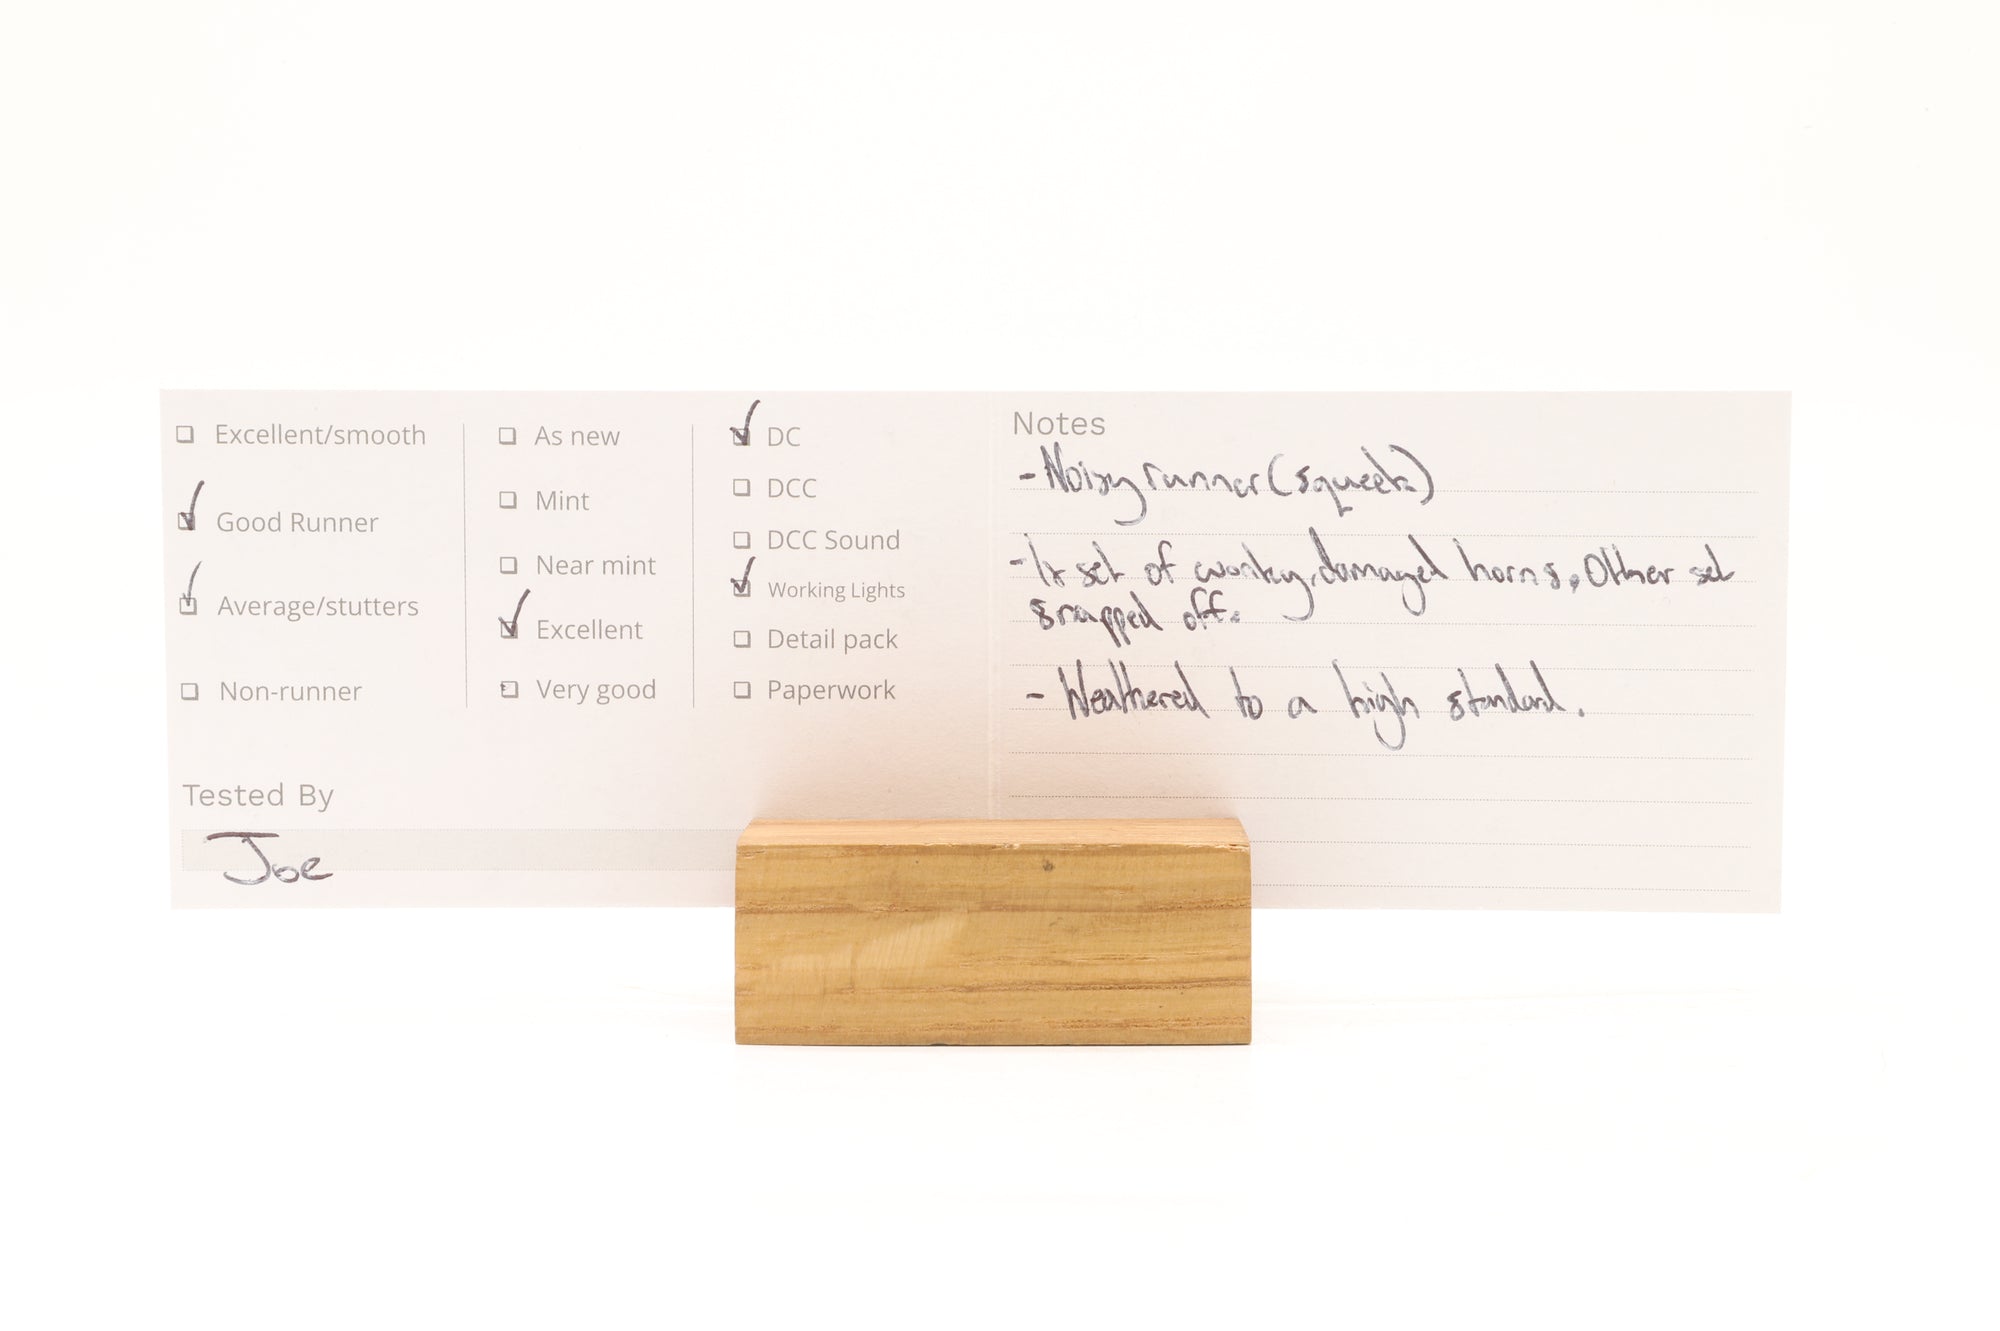 Excellent/smooth
Good Runner
Average/stutters
Non-runner
As new
Mint
Near mint
Excellent
Very good
DC
DCC
DCC Sound
Working Lights
Detail pack
Paperwork
Tested By
Joe
Notes
- Noisy runner (squeek)
- 1x set of wonky, damaged horns, Other set
snapped off.
- Weathered to a high standard.